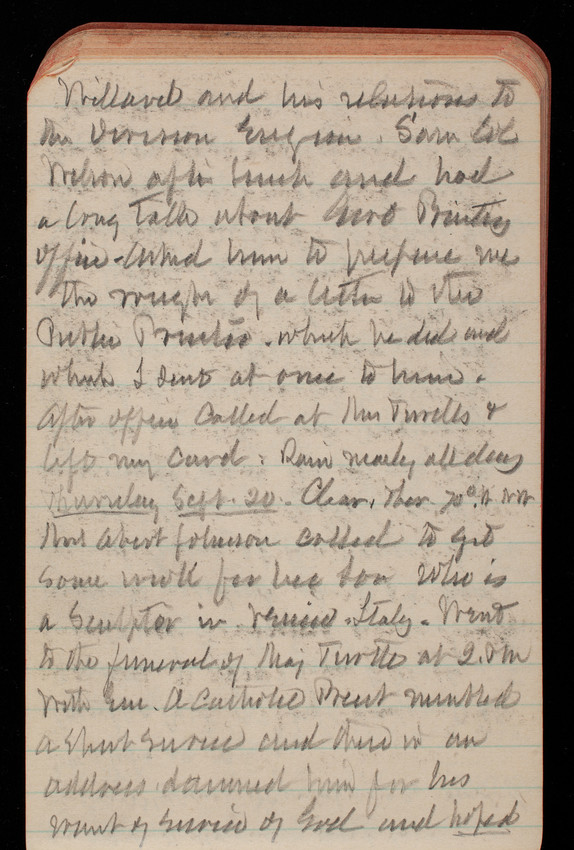 Willard and his relations to
the Division Engineer. Saw Col
Wilson after lunch and had
a long talk about Govt Printing
office - Asked him to prepare me
the rough of a letter to the
Public Printer. which he did and
which I sent at once to him.
After office Called at Mrs Turtles &
left my card: Rain nearly all day
Thursday Sept. 20. Clear. Ther 70°.
Mrs Johnson called to get
some work for her son who is
a Sculptor in Venice. Italy. Went
to the funeral of Maj Turtle at 2. P M
with Em. A Catholic Priest mumbled
a short service and then in an
address damned him for his
want of service of God and hoped